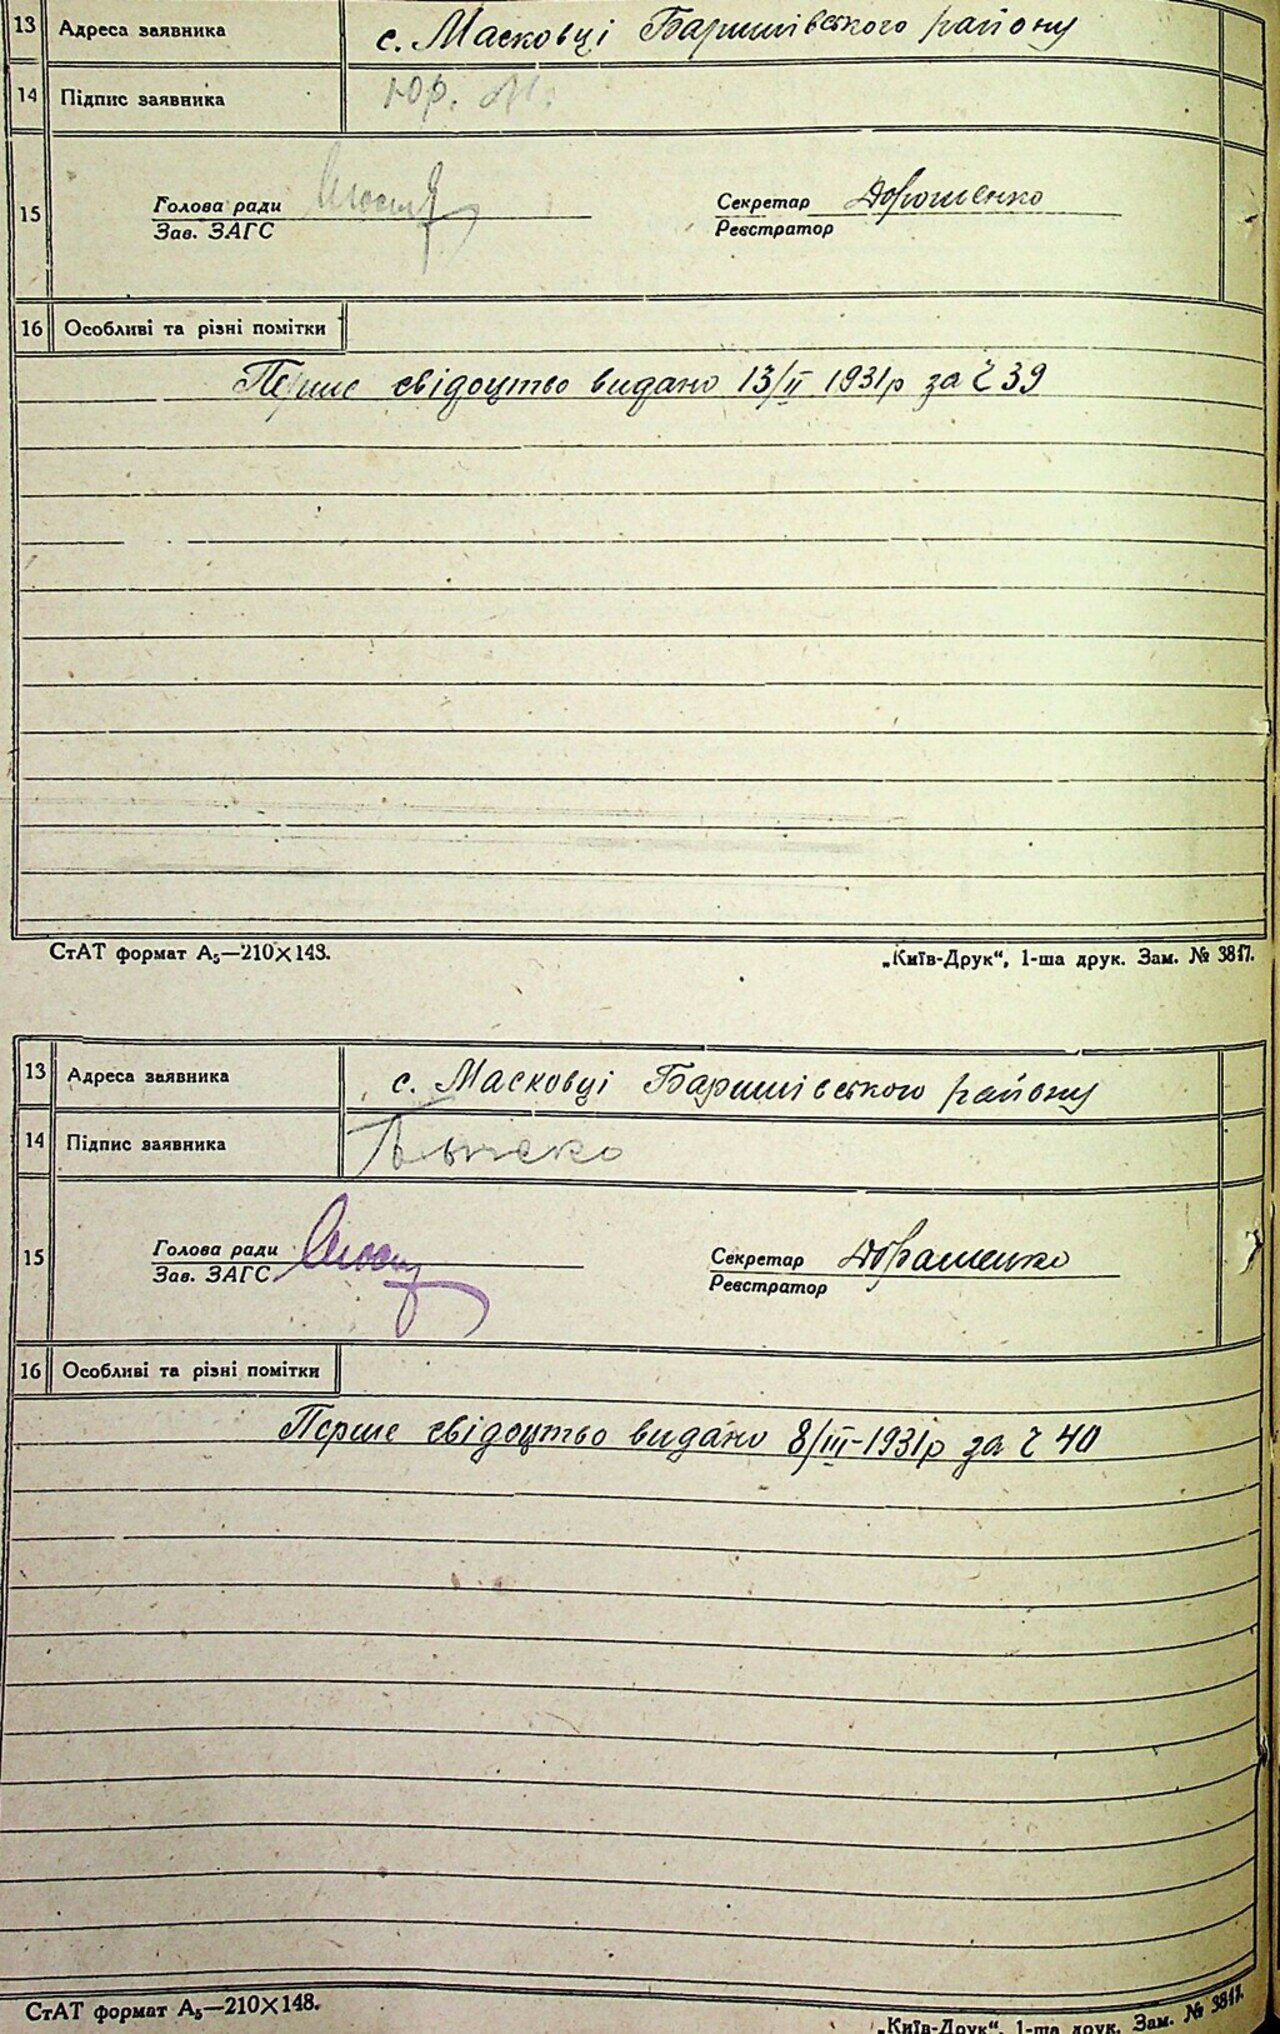 13 Адреса заявника с. Масковці Баришівського району
14 Підпис заявника Юр. М.
15 Голова ради Секретар Дорошенко
Зав. ЗАГС Реєстратор
16 Особливі та різні помітки
Перше свідоцтво видано 13/II 1931р за č 39
СтАТ формат А₅—210×143. „Київ-Друк“, 1-ша друк. Зам. № 3817.
13 Адреса заявника с. Масковці Баришівського району
14 Підпис заявника
15 Голова ради Секретар Дорашенко
Зав. ЗАГС Реєстратор
16 Особливі та різні помітки
Перше свідоцтво видано 8/III-1931р за č 40
СтАТ формат А₅—210×148. „Київ-Друк“, 1-ша друк. Зам. № 3817.